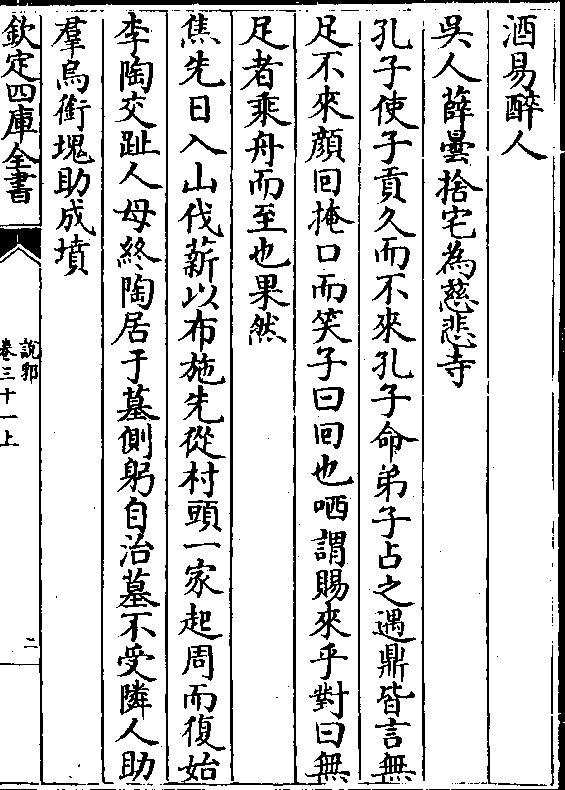 酒易醉人
吳人薛曇捨宅為慈悲寺
孔子使子貢久而不來孔子命弟子占之遇鼎皆言無
足不來顔回掩口而笑子曰回也哂謂賜來乎對曰無
足者乘舟而至也果然
焦先日入山伐薪以布施先從村頭一家起周而復始
李陶交趾人母終陶居于墓側躬自治墓不受隣人助
羣烏銜塊助成墳
欽定四庫全書
說郛
卷三十一上
二